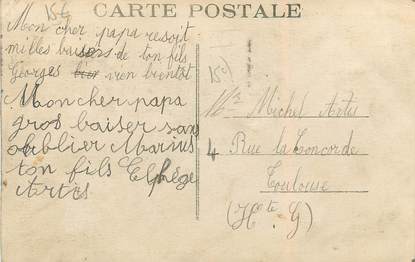 CARTE POSTALE
15f
Mon cher papa resoit
milles baisers de ton fils
Georges vien bientot
Mon cher papa
gros baiser sans
oublier Marius
ton fils Elphège
Artès
15f
Mr Michel Artès
4 Rue la Concorde
Toulouse
(Hte G)